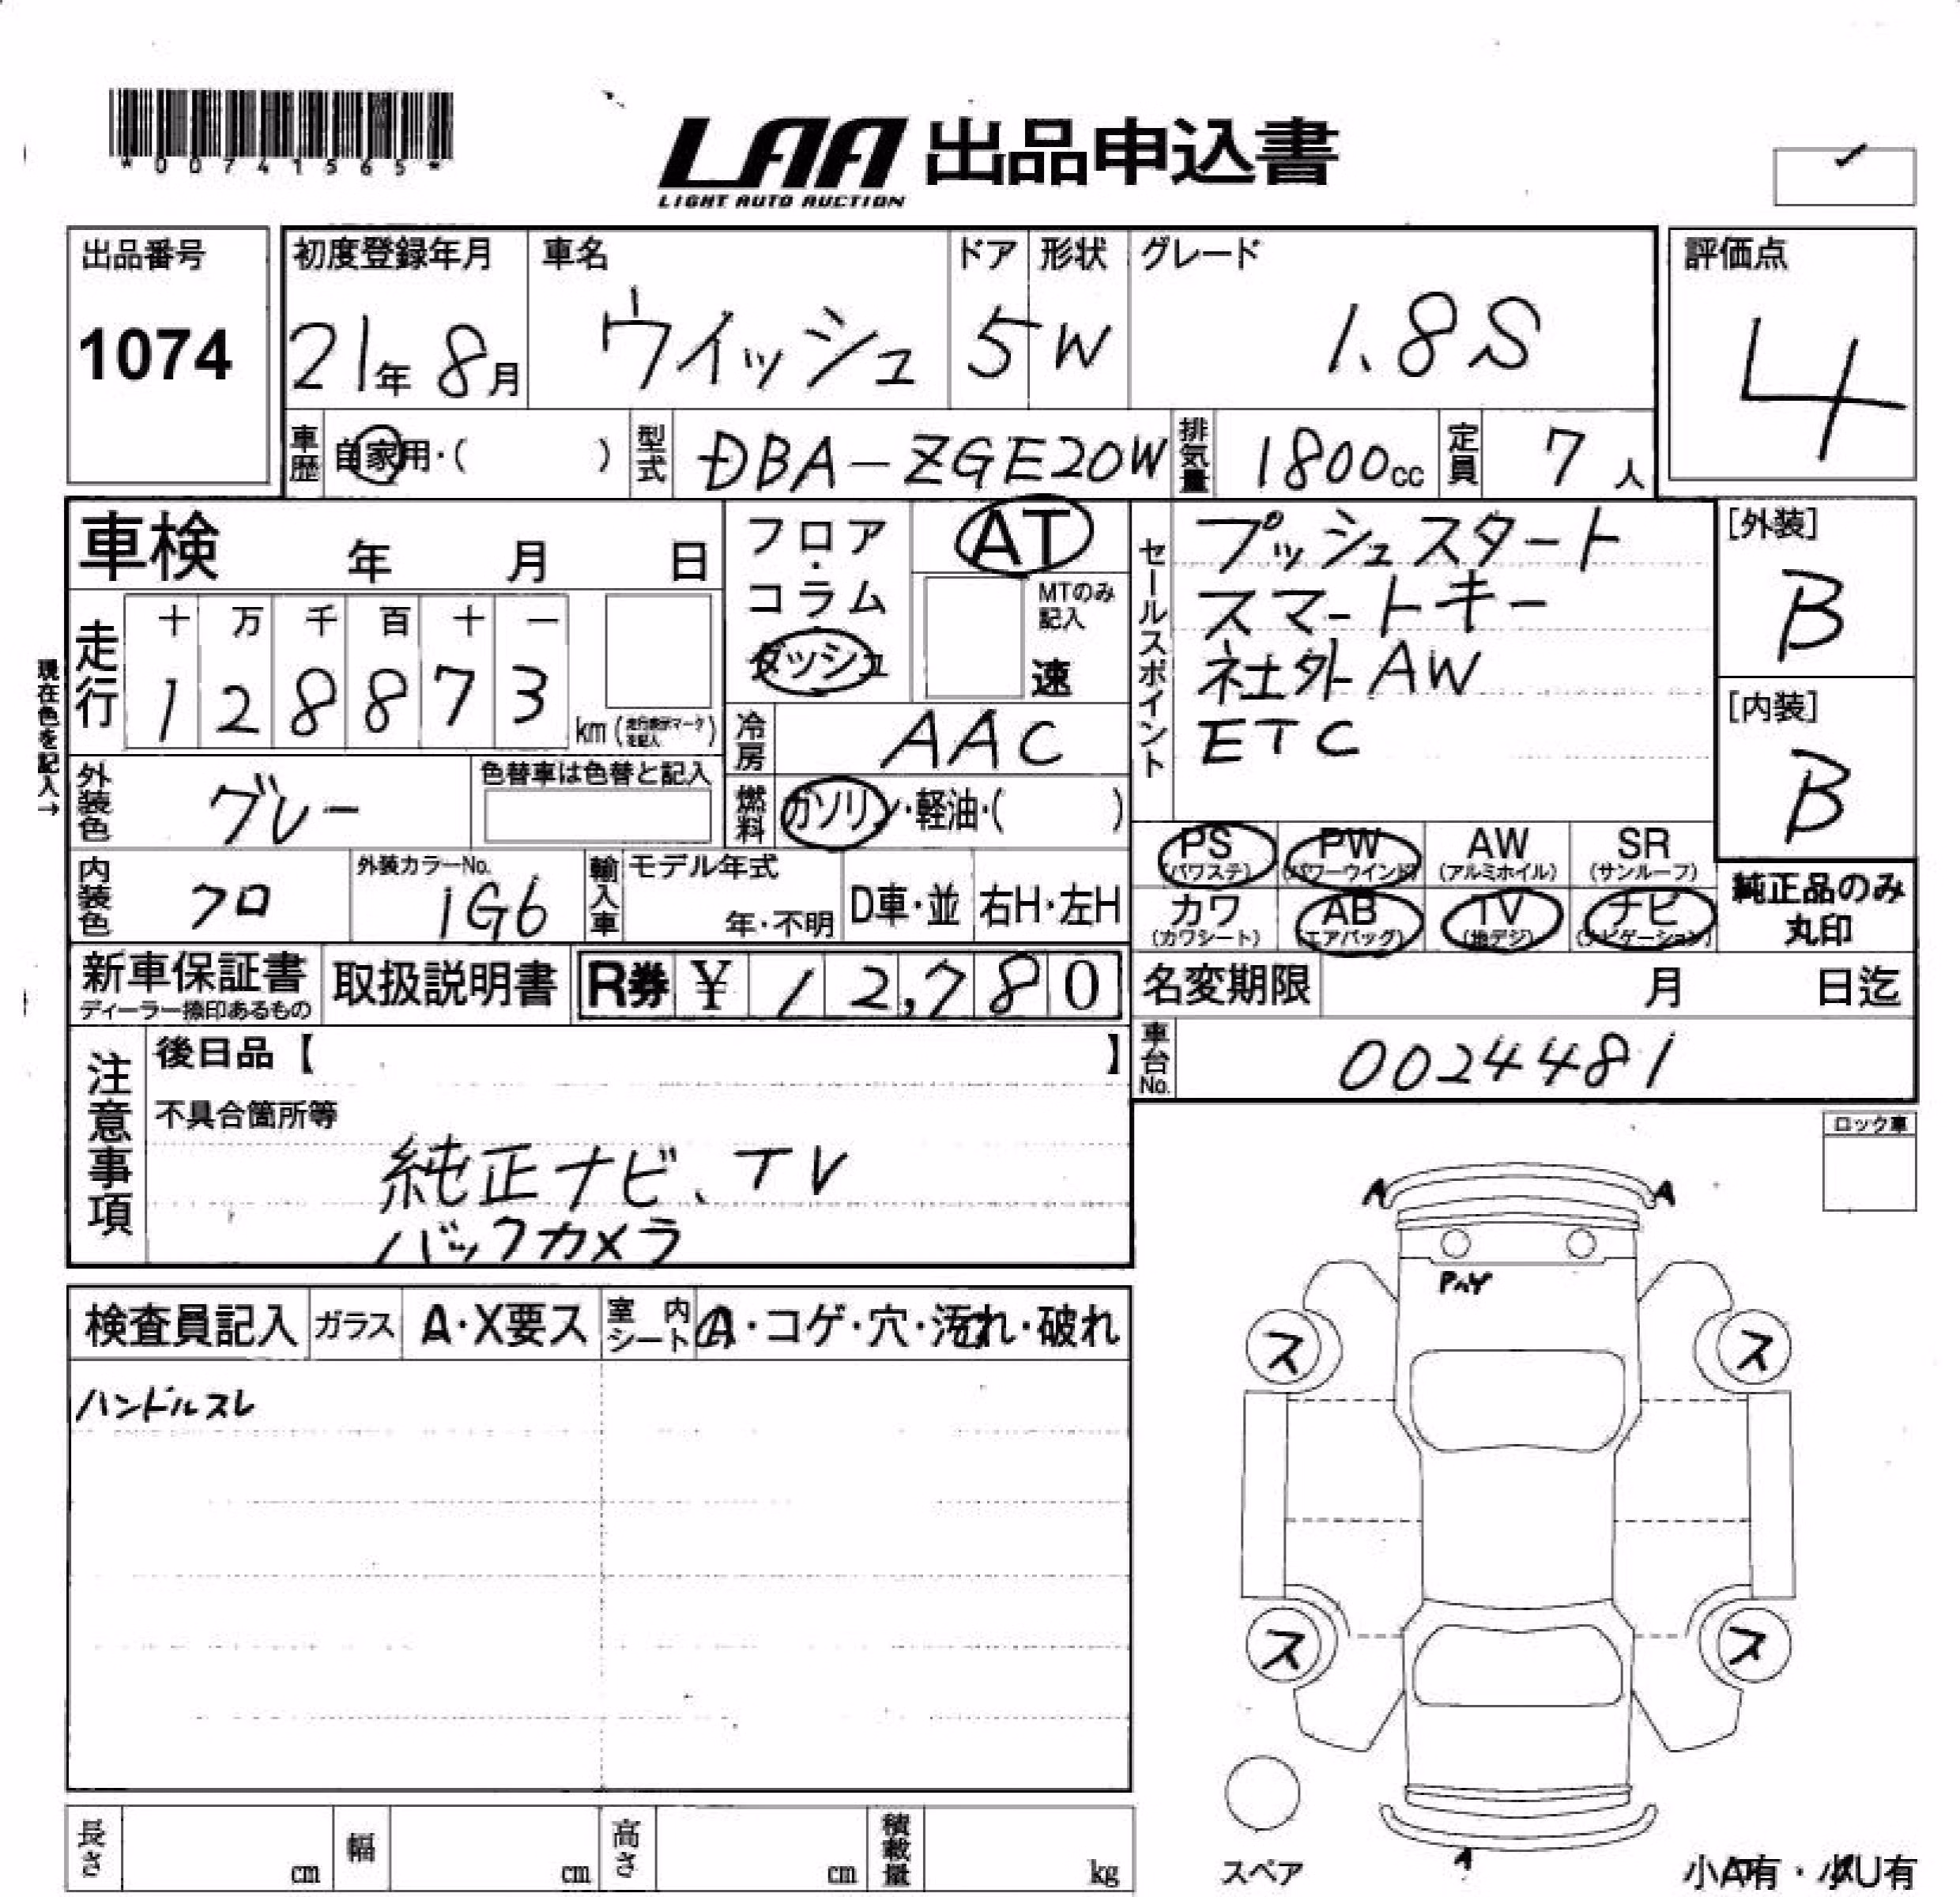 *00741565*
LAA 出品申込書
LIGHT AUTO AUCTION
出品番号
1074
初度登録年月
21年 8月
車名
ウイッシュ
ドア
5
形状
W
グレード
1.8S
評価点
4
車歴
自家用・( )
型式
DBA-ZGE20W
排気量
1800cc
定員
7人
車検 年 月 日
フロア・
コラム・
ダッシュ
AT
MTのみ
記入
速
セールスポイント
プッシュスタート
スマートキー
社外AW
ETC
[外装]
B
[内装]
B
現在色を記入→
走行
十 万 千 百 十 一
1 2 8 8 7 3
km (走行表示マークを記入)
冷房
AAC
外装色
グレー
色替車は色替と記入
燃料
ガソリン・軽油・( )
PS (パワステ)
PW (パワーウインド)
AW (アルミホイル)
SR (サンルーフ)
内装色
クロ
外装カラーNo.
1G6
輸入車
モデル年式
年・不明
D車・並
右H・左H
カワ (カワシート)
AB (エアバッグ)
TV (地デジ)
ナビ (ナビゲーション)
純正品のみ
丸印
新車保証書
ディーラー捺印あるもの
取扱説明書
R券 ¥ 12,780
名変期限 月 日迄
車台No.
0024481
注意事項
後日品【 】
不具合箇所等
純正ナビ、TV
バックカメラ
ロック車
A A
検査員記入
ガラス
A・X要ス
室内シート
A・コゲ・穴・汚れ・破れ
ハンドルスレ
ス ス
ス ス
長さ cm
幅 cm
高さ cm
積載量 kg
スペア
A
小A有・小U有